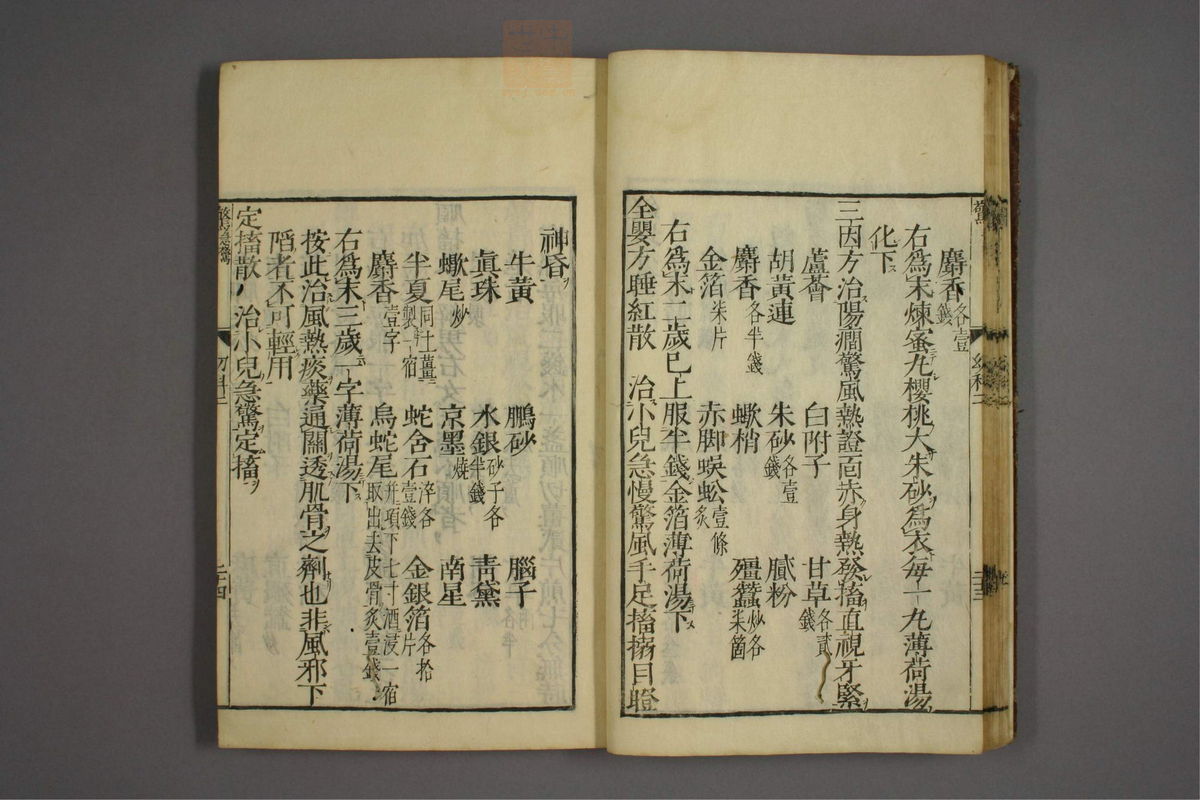 麝香各壹錢
右爲末煉蜜丸櫻桃大朱砂爲衣每一丸薄荷湯
化下
三因方治陽癎驚風熱證面赤身熱發搐直視牙緊
蘆薈 白附子 甘草各貳錢
胡黃連 朱砂各壹錢 膩粉
麝香各半錢 蠍梢 殭蠶炒各柒箇
金箔柒片 赤脚蜈蚣壹條炙
右爲末二歲已上服半錢金箔薄荷湯下
全嬰方睡紅散 治小兒急慢驚風手足搐搦目瞪
神昏
牛黃 鵬砂 腦子
眞珠 水銀砂子各半錢 靑黛
蠍尾炒 京墨燒 南星
半夏同土薑製一宿 蛇含石淬各壹錢 金銀箔各拾片
麝香壹字 烏蛇尾幷項下七寸酒浸一宿取出去皮骨炙壹錢
右爲末三歲一字薄荷湯下
按此治風熱痰藥通關透肌骨之劑也非風邪下
陷者不可輕用
定搐散 治小兒急驚定搐